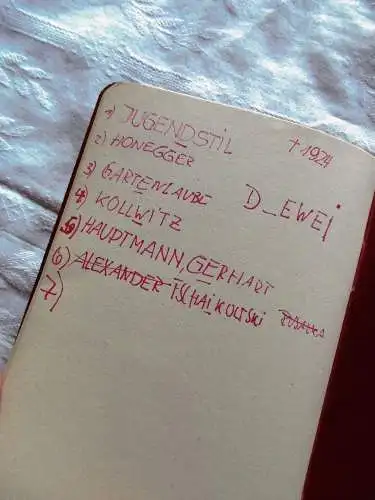 1) JUGENDSTIL
+ 1924
2) HONEGGER
3) GARTENLAUBE
D_EWEi
4) KOLLWITZ
5) HAUPTMANN, GERHART
6) ALEXANDER TSCHAIKOWSKI
7)